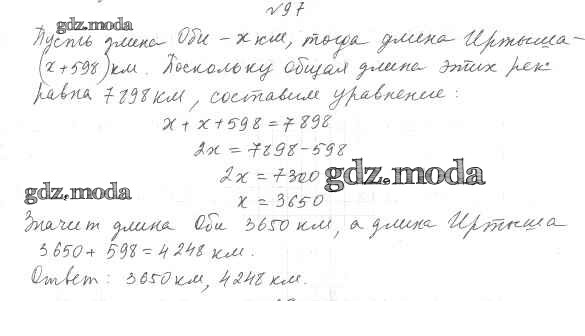 №97
gdz.moda
Пусть длина Оби – x км, тогда длина Иртыша –
(x+598) км. Поскольку общая длина этих рек
равна 7898 км, составим уравнение:
x + x + 598 = 7898
2x = 7898 - 598
2x = 7300
gdz.moda
x = 3650
gdz.moda
Значит длина Оби 3650 км, а длина Иртыша
3650 + 598 = 4248 км.
Ответ: 3650 км, 4248 км.